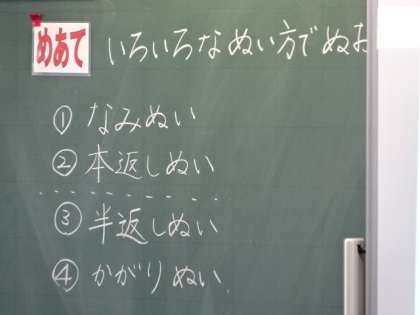 めあて いろいろなぬい方でぬお
① なみぬい
② 本返しぬい
③ 半返しぬい
④ かがりぬい